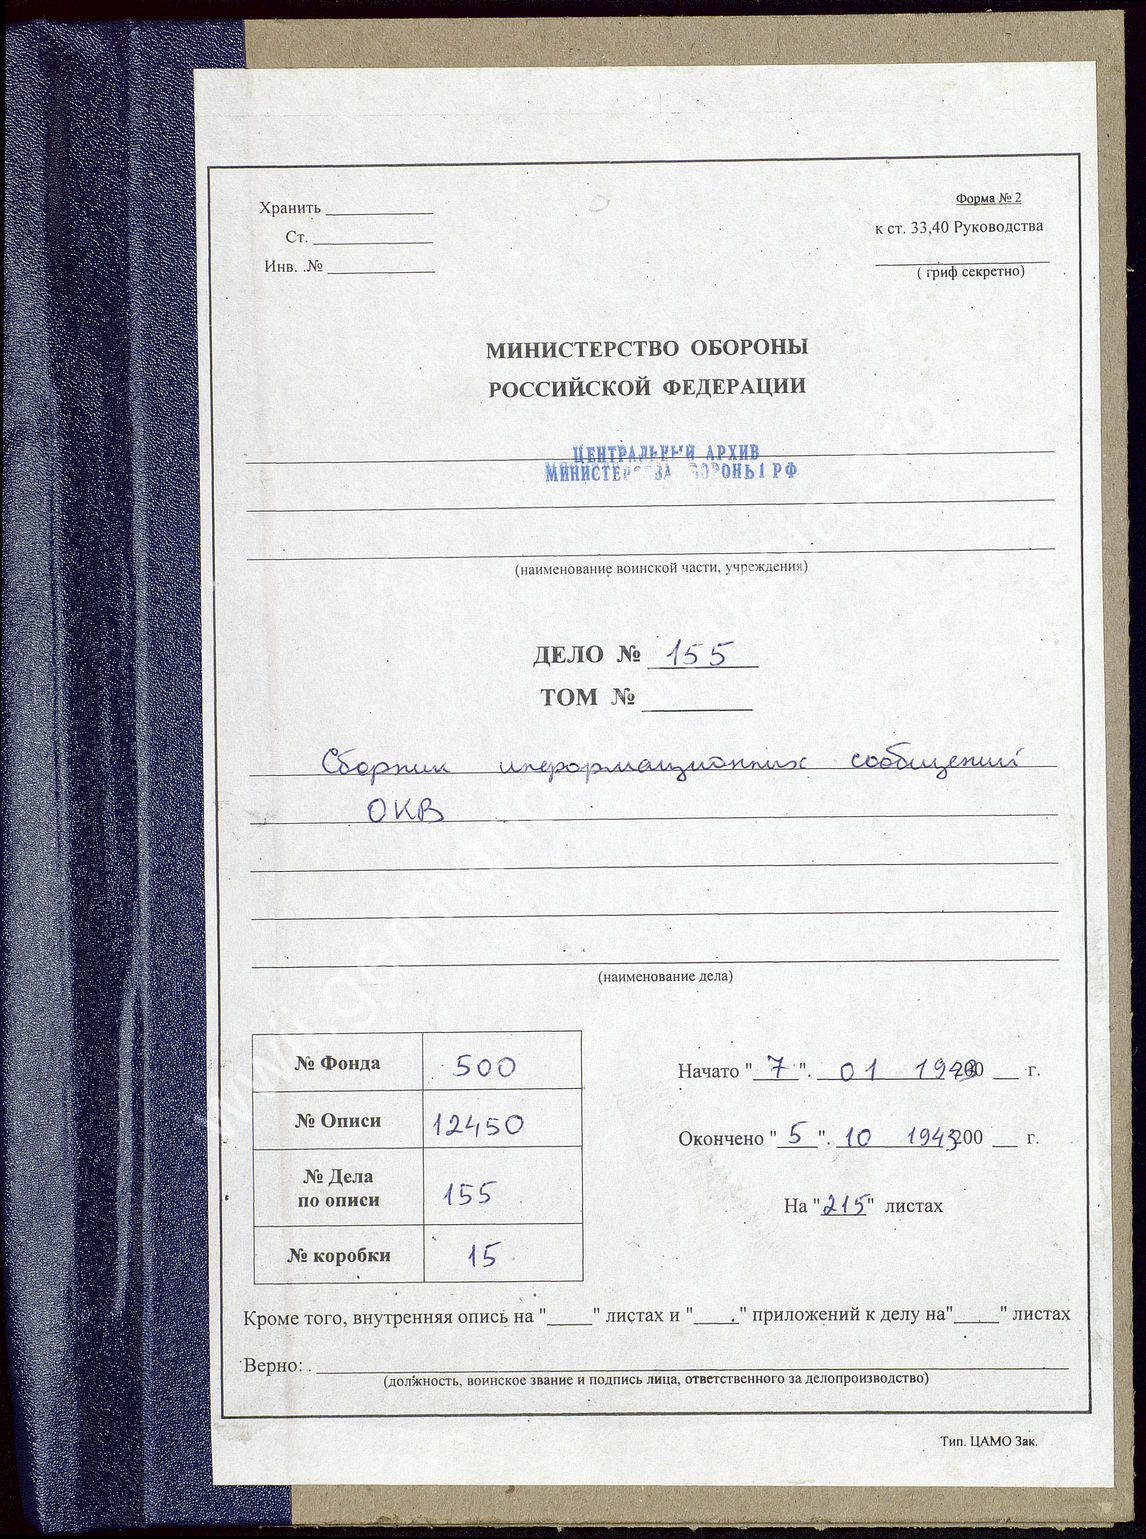 Хранить
Форма № 2
Ст.
к ст. 33,40 Руководства
Инв. .№
( гриф секретно)
МИНИСТЕРСТВО ОБОРОНЫ
РОССИЙСКОЙ ФЕДЕРАЦИИ
ЦЕНТРАЛЬНЫЙ АРХИВ
МИНИСТЕРСТВА ОБОРОНЫ РФ
(наименование воинской части, учреждения)
ДЕЛО № 155
ТОМ №
Сборник информационных сообщений
ОКВ
(наименование дела)
№ Фонда 500
Начато " 7 ". 01 1943 200 г.
№ Описи 12450
Окончено " 5 ". 10 1943 200 г.
№ Дела
по описи 155
На "215" листах
№ коробки 15
Кроме того, внутренняя опись на " " листах и " " приложений к делу на" " листах
Верно:
(должность, воинское звание и подпись лица, ответственного за делопроизводство)
Тип. ЦАМО Зак.